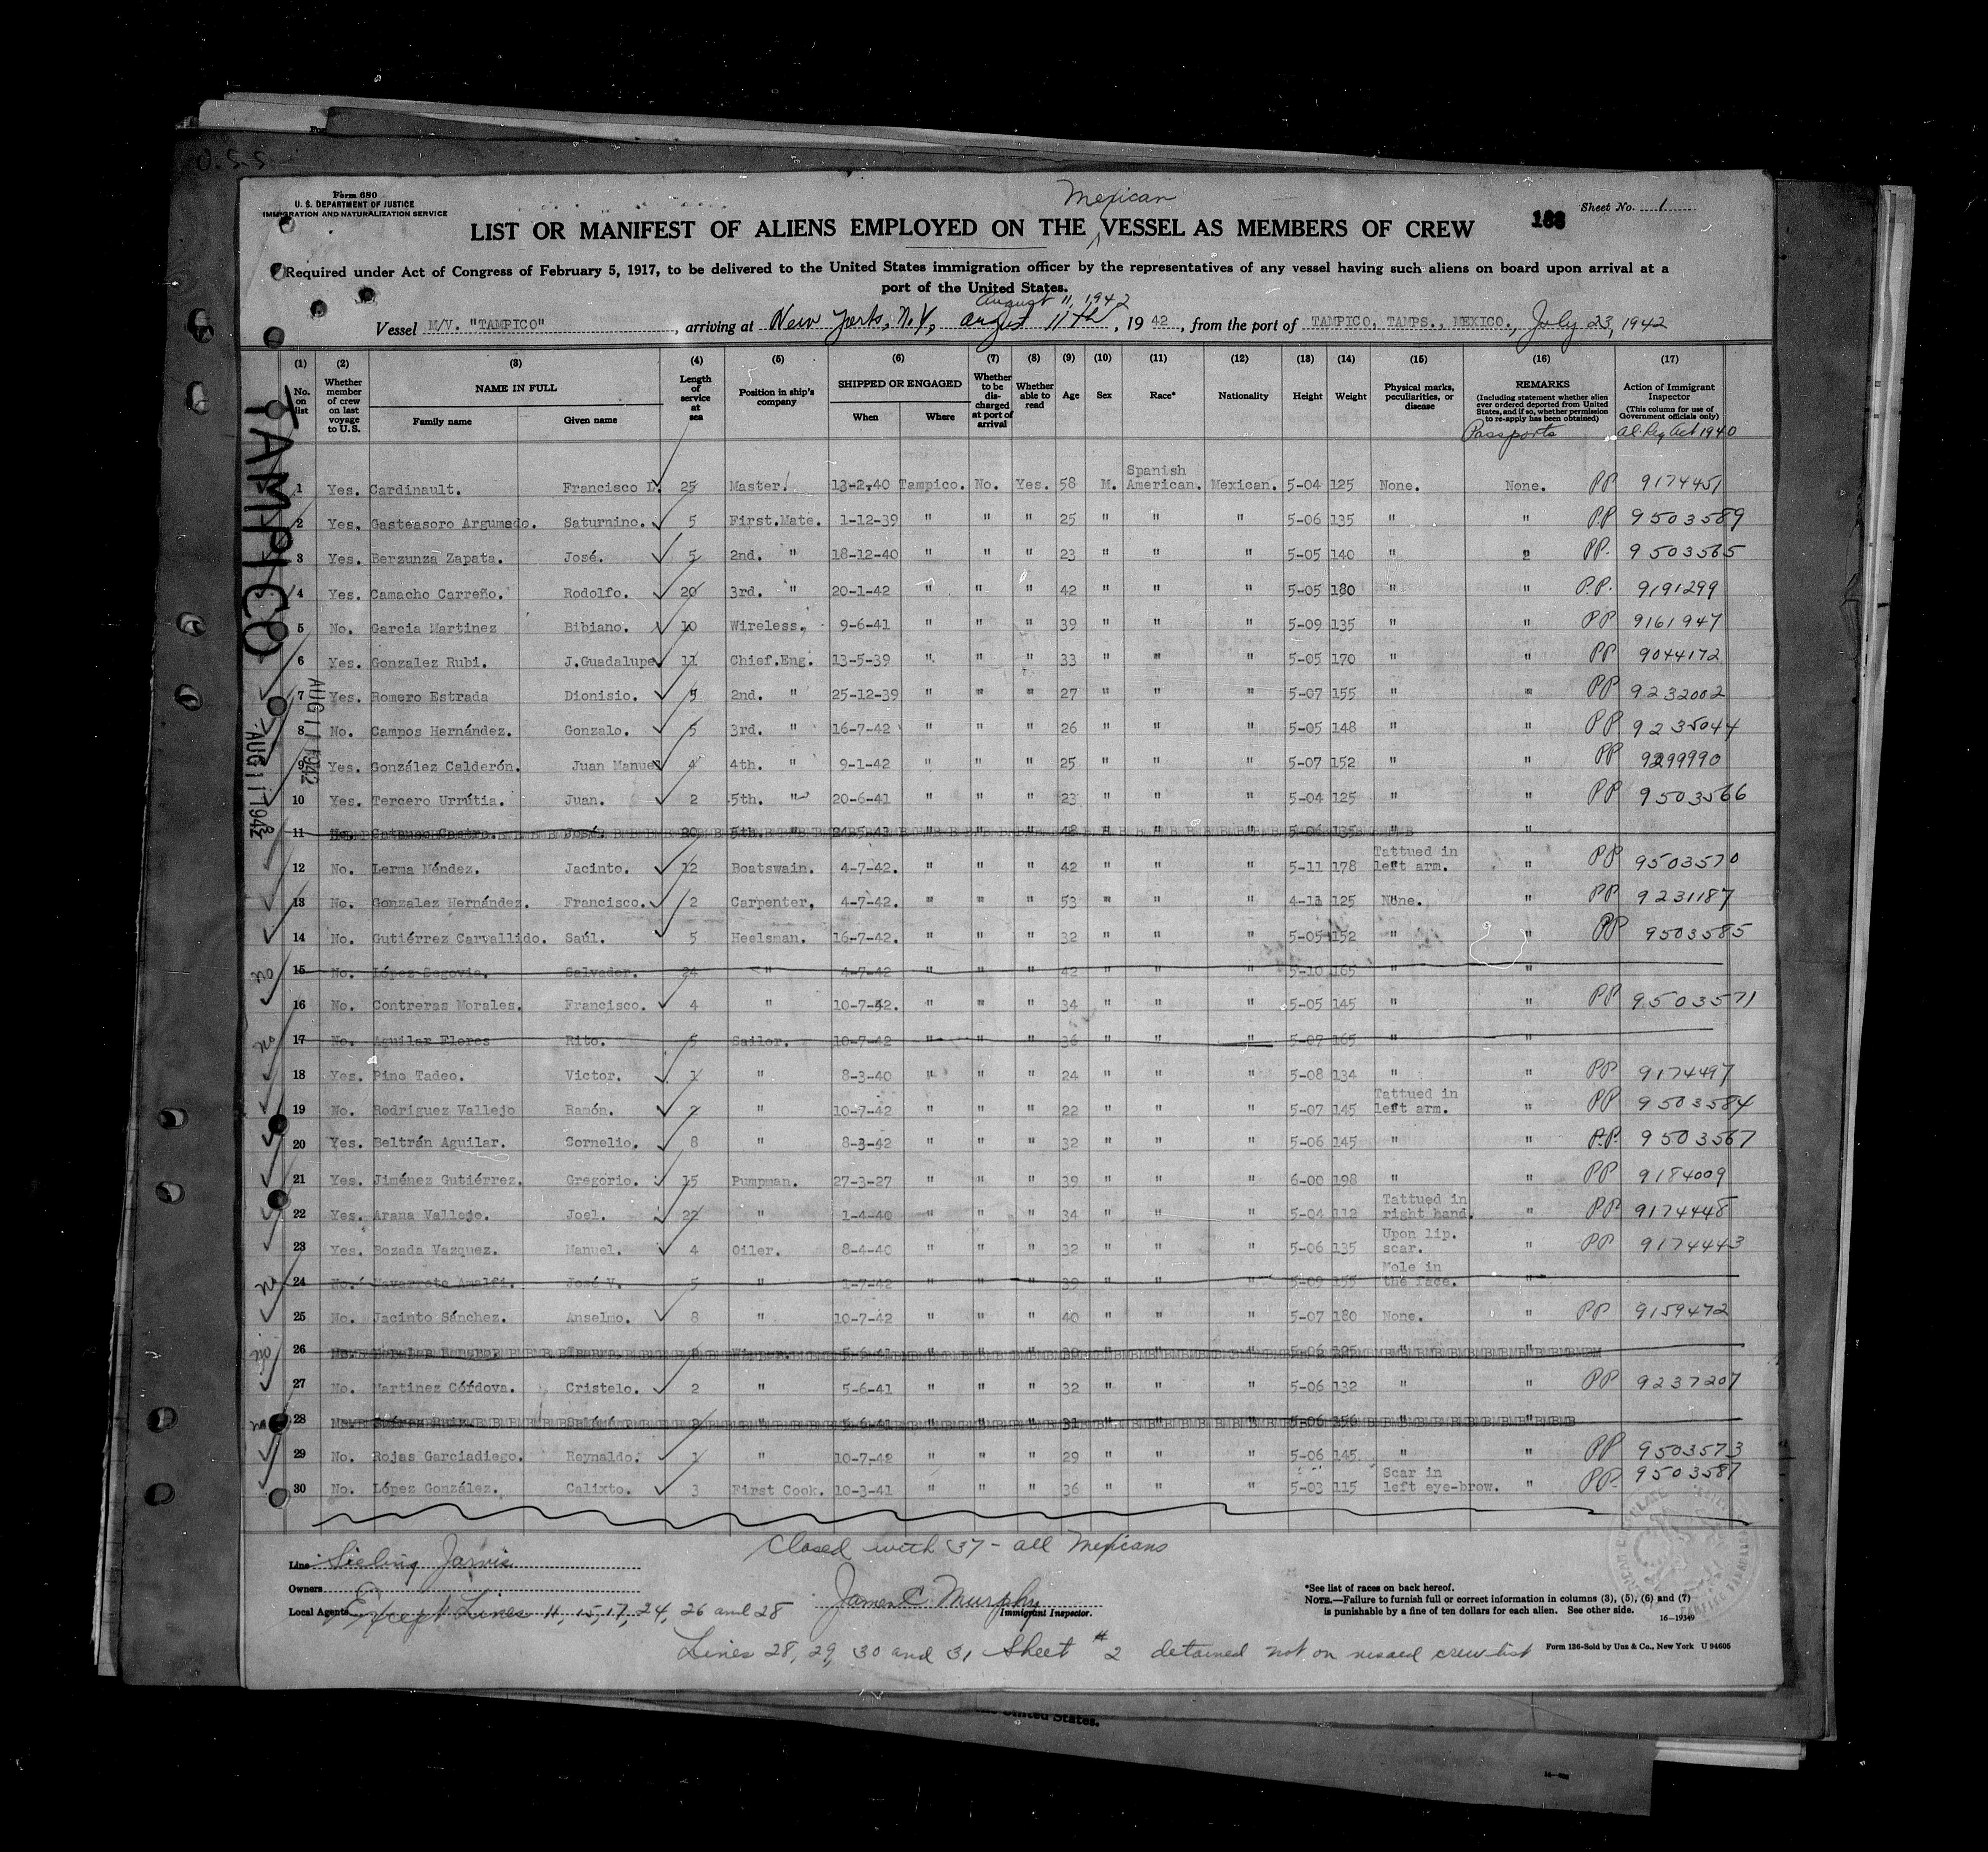 O.S.S.
Form 680
U. S. DEPARTMENT OF JUSTICE
IMMIGRATION AND NATURALIZATION SERVICE
Mexican
Sheet No. 1
LIST OR MANIFEST OF ALIENS EMPLOYED ON THE VESSEL AS MEMBERS OF CREW
Required under Act of Congress of February 5, 1917, to be delivered to the United States immigration officer by the representatives of any vessel having such aliens on board upon arrival at a
port of the United States.
August 11, 1942
Vessel M/V. "TAMPICO", arriving at New York, N.Y., August 11th, 1942, from the port of TAMPICO, TAMPS., MEXICO., July 23, 1942
(1) (2) (3) (4) (5) (6) (7) (8) (9) (10) (11) (12) (13) (14) (15) (16) (17)
No. on list
Whether member of crew on last voyage to U.S.
NAME IN FULL
Family name Given name
Length of service at sea
Position in ship's company
SHIPPED OR ENGAGED
When Where
Whether to be discharged at port of arrival
Whether able to read
Age Sex Race* Nationality Height Weight
Physical marks, peculiarities, or disease
REMARKS
(Including statement whether alien ever ordered deported from United States, and if so, whether permission to re-apply has been obtained)
Passports
Action of Immigrant Inspector
(This column for use of Government officials only)
Al. Reg Act 1940
TAMPICO
AUG 11 1942
AUG 11 1942
1 Yes. Cardinault. Francisco L. 25 Master. 13-2-40 Tampico. No. Yes. 58 M. Spanish American. Mexican. 5-04 125 None. None. PP 9174451
2 Yes. Gasteasoro Argumedo. Saturnino. 5 First.Mate. 1-12-39 " " " 25 " " " 5-06 135 " " PP 9503589
3 Yes. Berzunza Zapata. José. 5 2nd. " 18-12-40 " " " 23 " " " 5-05 140 " " PP. 9503565
4 Yes. Camacho Carreño. Rodolfo. 20 3rd. " 20-1-42 " " " 42 " " " 5-05 180 " " P.P. 9191299
5 No. Garcia Martinez Bibiano. 10 Wireless. 9-6-41 " " " 39 " " " 5-09 135 " " PP 9161947
6 Yes. Gonzalez Rubi. J.Guadalupe 11 Chief.Eng. 13-5-39 " " " 33 " " " 5-05 170 " " PP 9044172
7 Yes. Romero Estrada Dionisio. 5 2nd. " 25-12-39 " " " 27 " " " 5-07 155 " " PP 9232002
8 No. Campos Hernández. Gonzalo. 5 3rd. " 16-7-42 " " " 26 " " " 5-05 148 " " PP 9235044
9 Yes. González Calderón. Juan Manuel 4 4th. " 9-1-42 " " " 25 " " " 5-07 152 " " PP 9299990
10 Yes. Tercero Urrútia. Juan. 2 5th. " 20-6-41 " " " 23 " " " 5-04 125 " " PP 9503566
11 No. José. 20 5th. " 42 " " " 5-06 135 " "
12 No. Lerma Méndez. Jacinto. 12 Boatswain. 4-7-42. " " " 42 " " " 5-11 178 Tattued in left arm. " PP 9503570
13 No. Gonzalez Hernández. Francisco. 2 Carpenter. 4-7-42. " " " 53 " " " 4-11 125 None. " PP 9231187
14 No. Gutiérrez Carvallido. Saúl. 5 Heelsman. 16-7-42. " " " 32 " " " 5-05 152 " " PP 9503585
no 15 No. López Segovia. Salvador. 24 " 4-7-42 " " " 42 " " " 5-10 165 " "
16 No. Contreras Morales. Francisco. 4 " 10-7-42. " " " 34 " " " 5-05 145 " " PP 9503571
no 17 No. Aguilar Flores Rito. 5 Sailor. 10-7-42 " " " 36 " " " 5-07 165 " "
18 Yes. Pino Tadeo. Victor. 1 " 8-3-40 " " " 24 " " " 5-08 134 " " PP 9174497
19 No. Rodriguez Vallejo Ramón. 2 " 10-7-42 " " " 22 " " " 5-07 145 Tattued in left arm. " PP 9503584
20 Yes. Beltrán Aguilar. Cornelio. 8 " 8-3-42 " " " 32 " " " 5-06 145 " " P.P. 9503567
21 Yes. Jiménez Gutiérrez. Gregorio. 15 Pumpman. 27-3-27 " " " 39 " " " 6-00 198 " " PP 9184009
22 Yes. Arana Vallejo. Joel. 22 " 1-4-40 " " " 34 " " " 5-04 112 Tattued in right hand. " PP 9174448
23 Yes. Bozada Vazquez. Manuel. 4 Oiler. 8-4-40 " " " 32 " " " 5-06 135 Upon lip. scar. " PP 9174443
no 24 No. Navarrete Amalfi. José V. 5 " 1-7-42 " " " 39 " " " 5-09 155 Mole in the face. "
25 No. Jacinto Sánchez. Anselmo. 8 " 10-7-42 " " " 40 " " " 5-07 180 None. " PP 9159472
no 26 No. 5-6-41 " " " " " " 5-06 " "
27 No. Martinez Córdova. Cristelo. 2 " 5-6-41 " " " 32 " " " 5-06 132 " " PP 9237207
no 28 " 5-6-41 " " " 31 " " " 5-06 156 " "
29 No. Rojas Garciadiego. Reynaldo. 1 " 10-7-42 " " " 29 " " " 5-06 145 " " PP 9503573
30 No. López González. Calixto. 3 First Cook. 10-3-41 " " " 36 " " " 5-03 115 Scar in left eye-brow. " PP 9503587
Closed with 37 - all Mexicans
Line
Owners
Local Agents
Except Lines 11, 15, 17, 24, 26 and 28
James C. Murphy
Immigrant Inspector.
*See list of races on back hereof.
NOTE.—Failure to furnish full or correct information in columns (3), (5), (6) and (7)
is punishable by a fine of ten dollars for each alien. See other side.
16—19349
Lines 28, 29, 30 and 31 Sheet #2 detained not on visaed crew list
Form 136-Sold by Unz & Co., New York U 94605
United States.